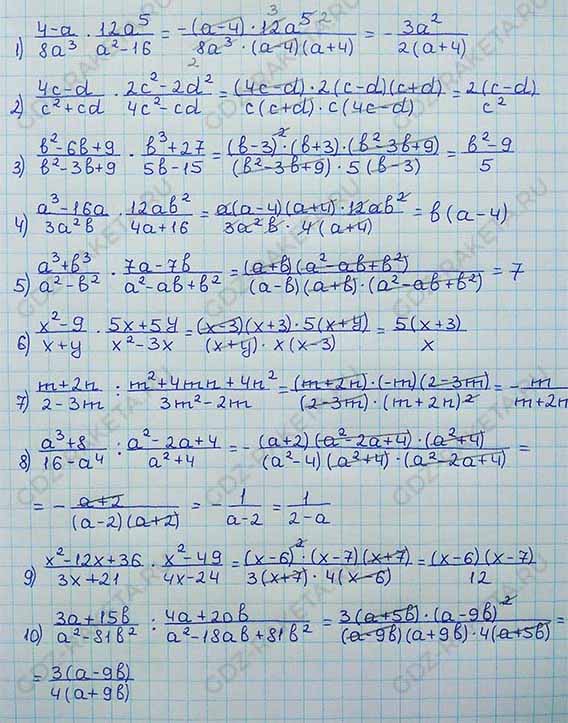 1) (4-a)/(8a³) · (12a⁵)/(a²-16) = (-(a-4) · 12a⁵)/(8a³ · (a-4)(a+4)) = -(3a²)/(2(a+4))
2) (4c-d)/(c²+cd) · (2c²-2d²)/(4c²-cd) = ((4c-d) · 2(c-d)(c+d))/(c(c+d) · c(4c-d)) = (2(c-d))/(c²)
3) (b²-6b+9)/(b²-3b+9) · (b³+27)/(5b-15) = ((b-3)² · (b+3) · (b²-3b+9))/((b²-3b+9) · 5(b-3)) = (b²-9)/5
4) (a³-16a)/(3a²b) · (12ab²)/(4a+16) = (a(a-4)(a+4) · 12ab²)/(3a²b · 4(a+4)) = b(a-4)
5) (a³+b³)/(a²-b²) · (7a-7b)/(a²-ab+b²) = ((a+b)(a²-ab+b²))/((a-b)(a+b) · (a²-ab+b²)) = 7
6) (x²-9)/(x+y) · (5x+5y)/(x²-3x) = ((x-3)(x+3) · 5(x+y))/((x+y) · x(x-3)) = (5(x+3))/x
7) (m+2n)/(2-3m) : (m²+4mn+4n²)/(3m²-2m) = ((m+2n) · (-m)(2-3m))/((2-3m) · (m+2n)²) = -m/(m+2n)
8) (a³+8)/(16-a⁴) : (a²-2a+4)/(a²+4) = -((a+2)(a²-2a+4) · (a²+4))/((a²-4)(a²+4) · (a²-2a+4)) =
= -(a+2)/((a-2)(a+2)) = -1/(a-2) = 1/(2-a)
9) (x²-12x+36)/(3x+21) · (x²-49)/(4x-24) = ((x-6)² · (x-7)(x+7))/(3(x+7) · 4(x-6)) = ((x-6)(x-7))/12
10) (3a+15b)/(a²-81b²) : (4a+20b)/(a²-18ab+81b²) = (3(a+5b) · (a-9b)²)/((a-9b)(a+9b) · 4(a+5b)) =
= (3(a-9b))/(4(a+9b))
GDZ-RAKETA.RU